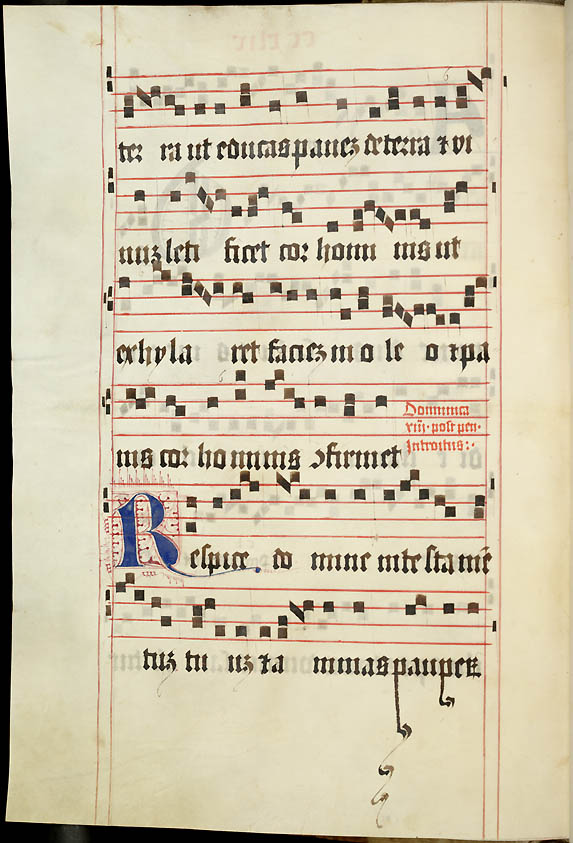 ter ra ut educas panez de terra ⁊ vi
nuz leti ficet cor homi nis ut
exhyla ret faciez in o le o ⁊ pa
nis cor hominis ɔfirmet
Dominica
xiij. post pen.
Introitus:
Respice do mine in testa mē
tuz tu uz ⁊ a nimas paupeꝝ